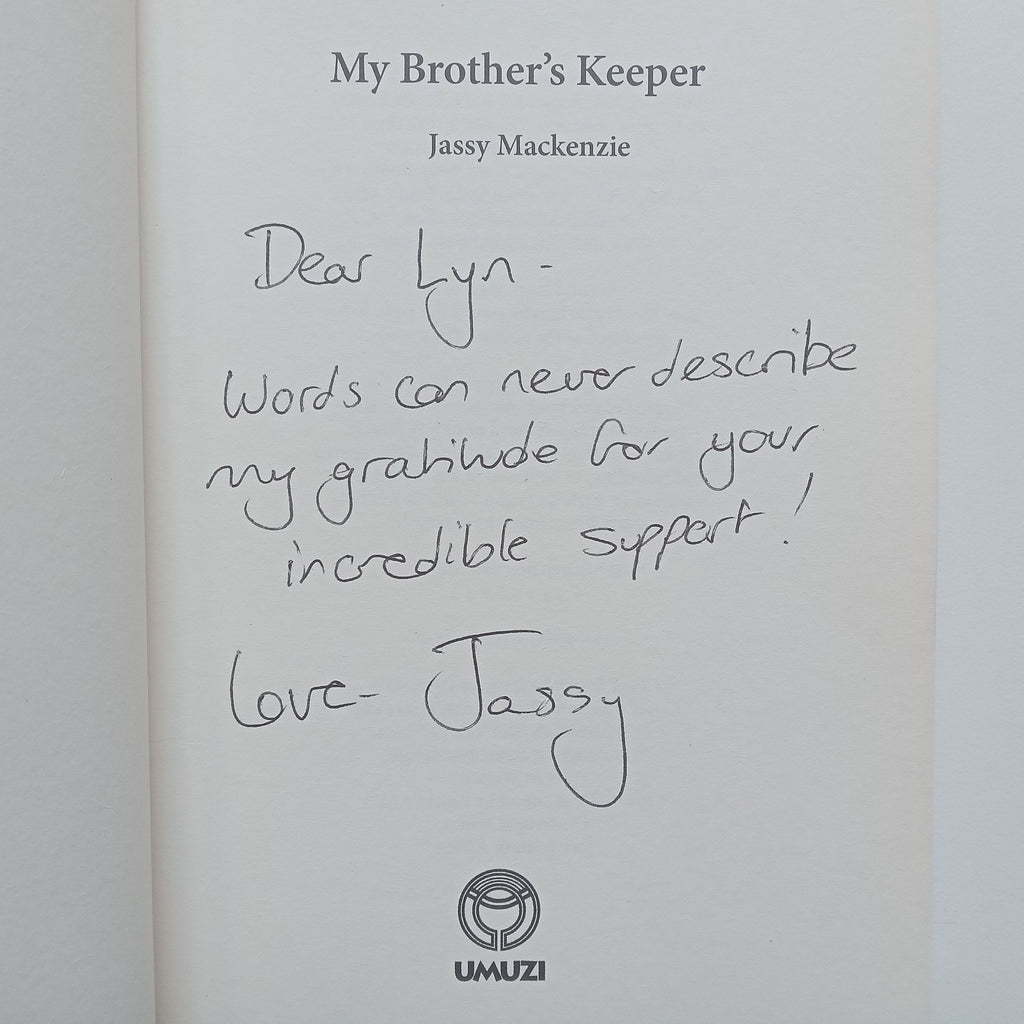 My Brother's Keeper
Jassy Mackenzie
Dear Lyn -
Words can never describe
my gratitude for your
incredible support!
Love- Jassy
UMUZI